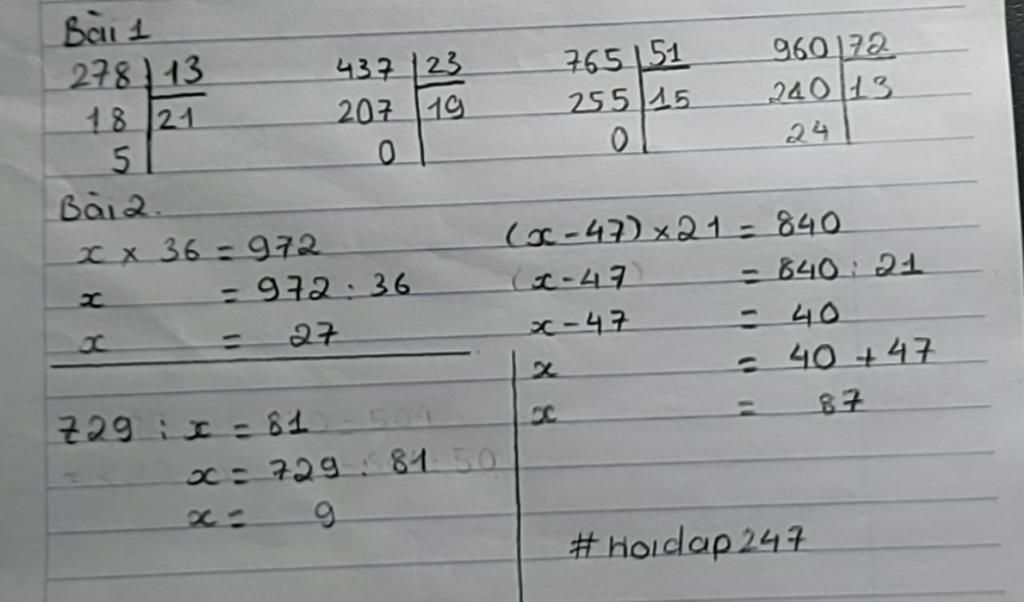 Bài 1
278 | 13    437 | 23    765 | 51    960 | 72
18 | 21    207 | 19    255 | 15    240 | 13
5 |    0 |    0 |    24 |
Bài 2.
x × 36 = 972
x = 972 : 36
x = 27
729 : x = 81
x = 729 : 81
x = 9
(x - 47) × 21 = 840
(x - 47) = 840 : 21
x - 47 = 40
x = 40 + 47
x = 87
#Hoidap247